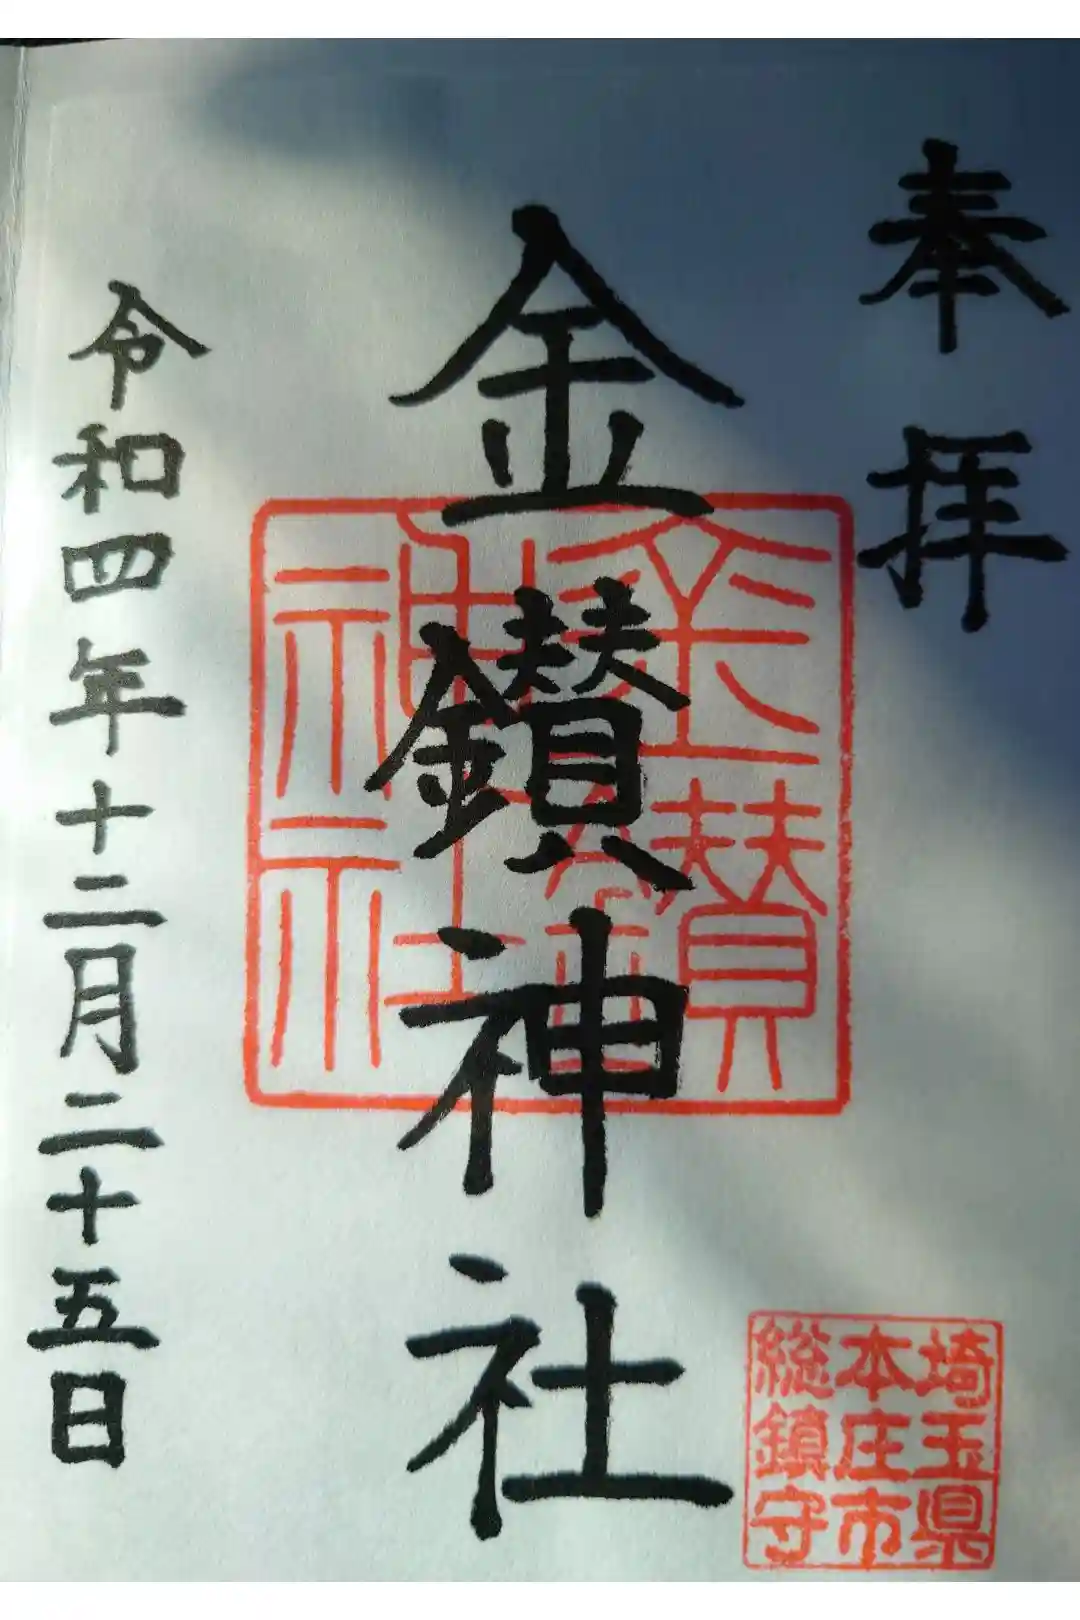 奉拝
金鑚神社
令和四年十二月二十五日
埼玉県
本庄市
総鎮守